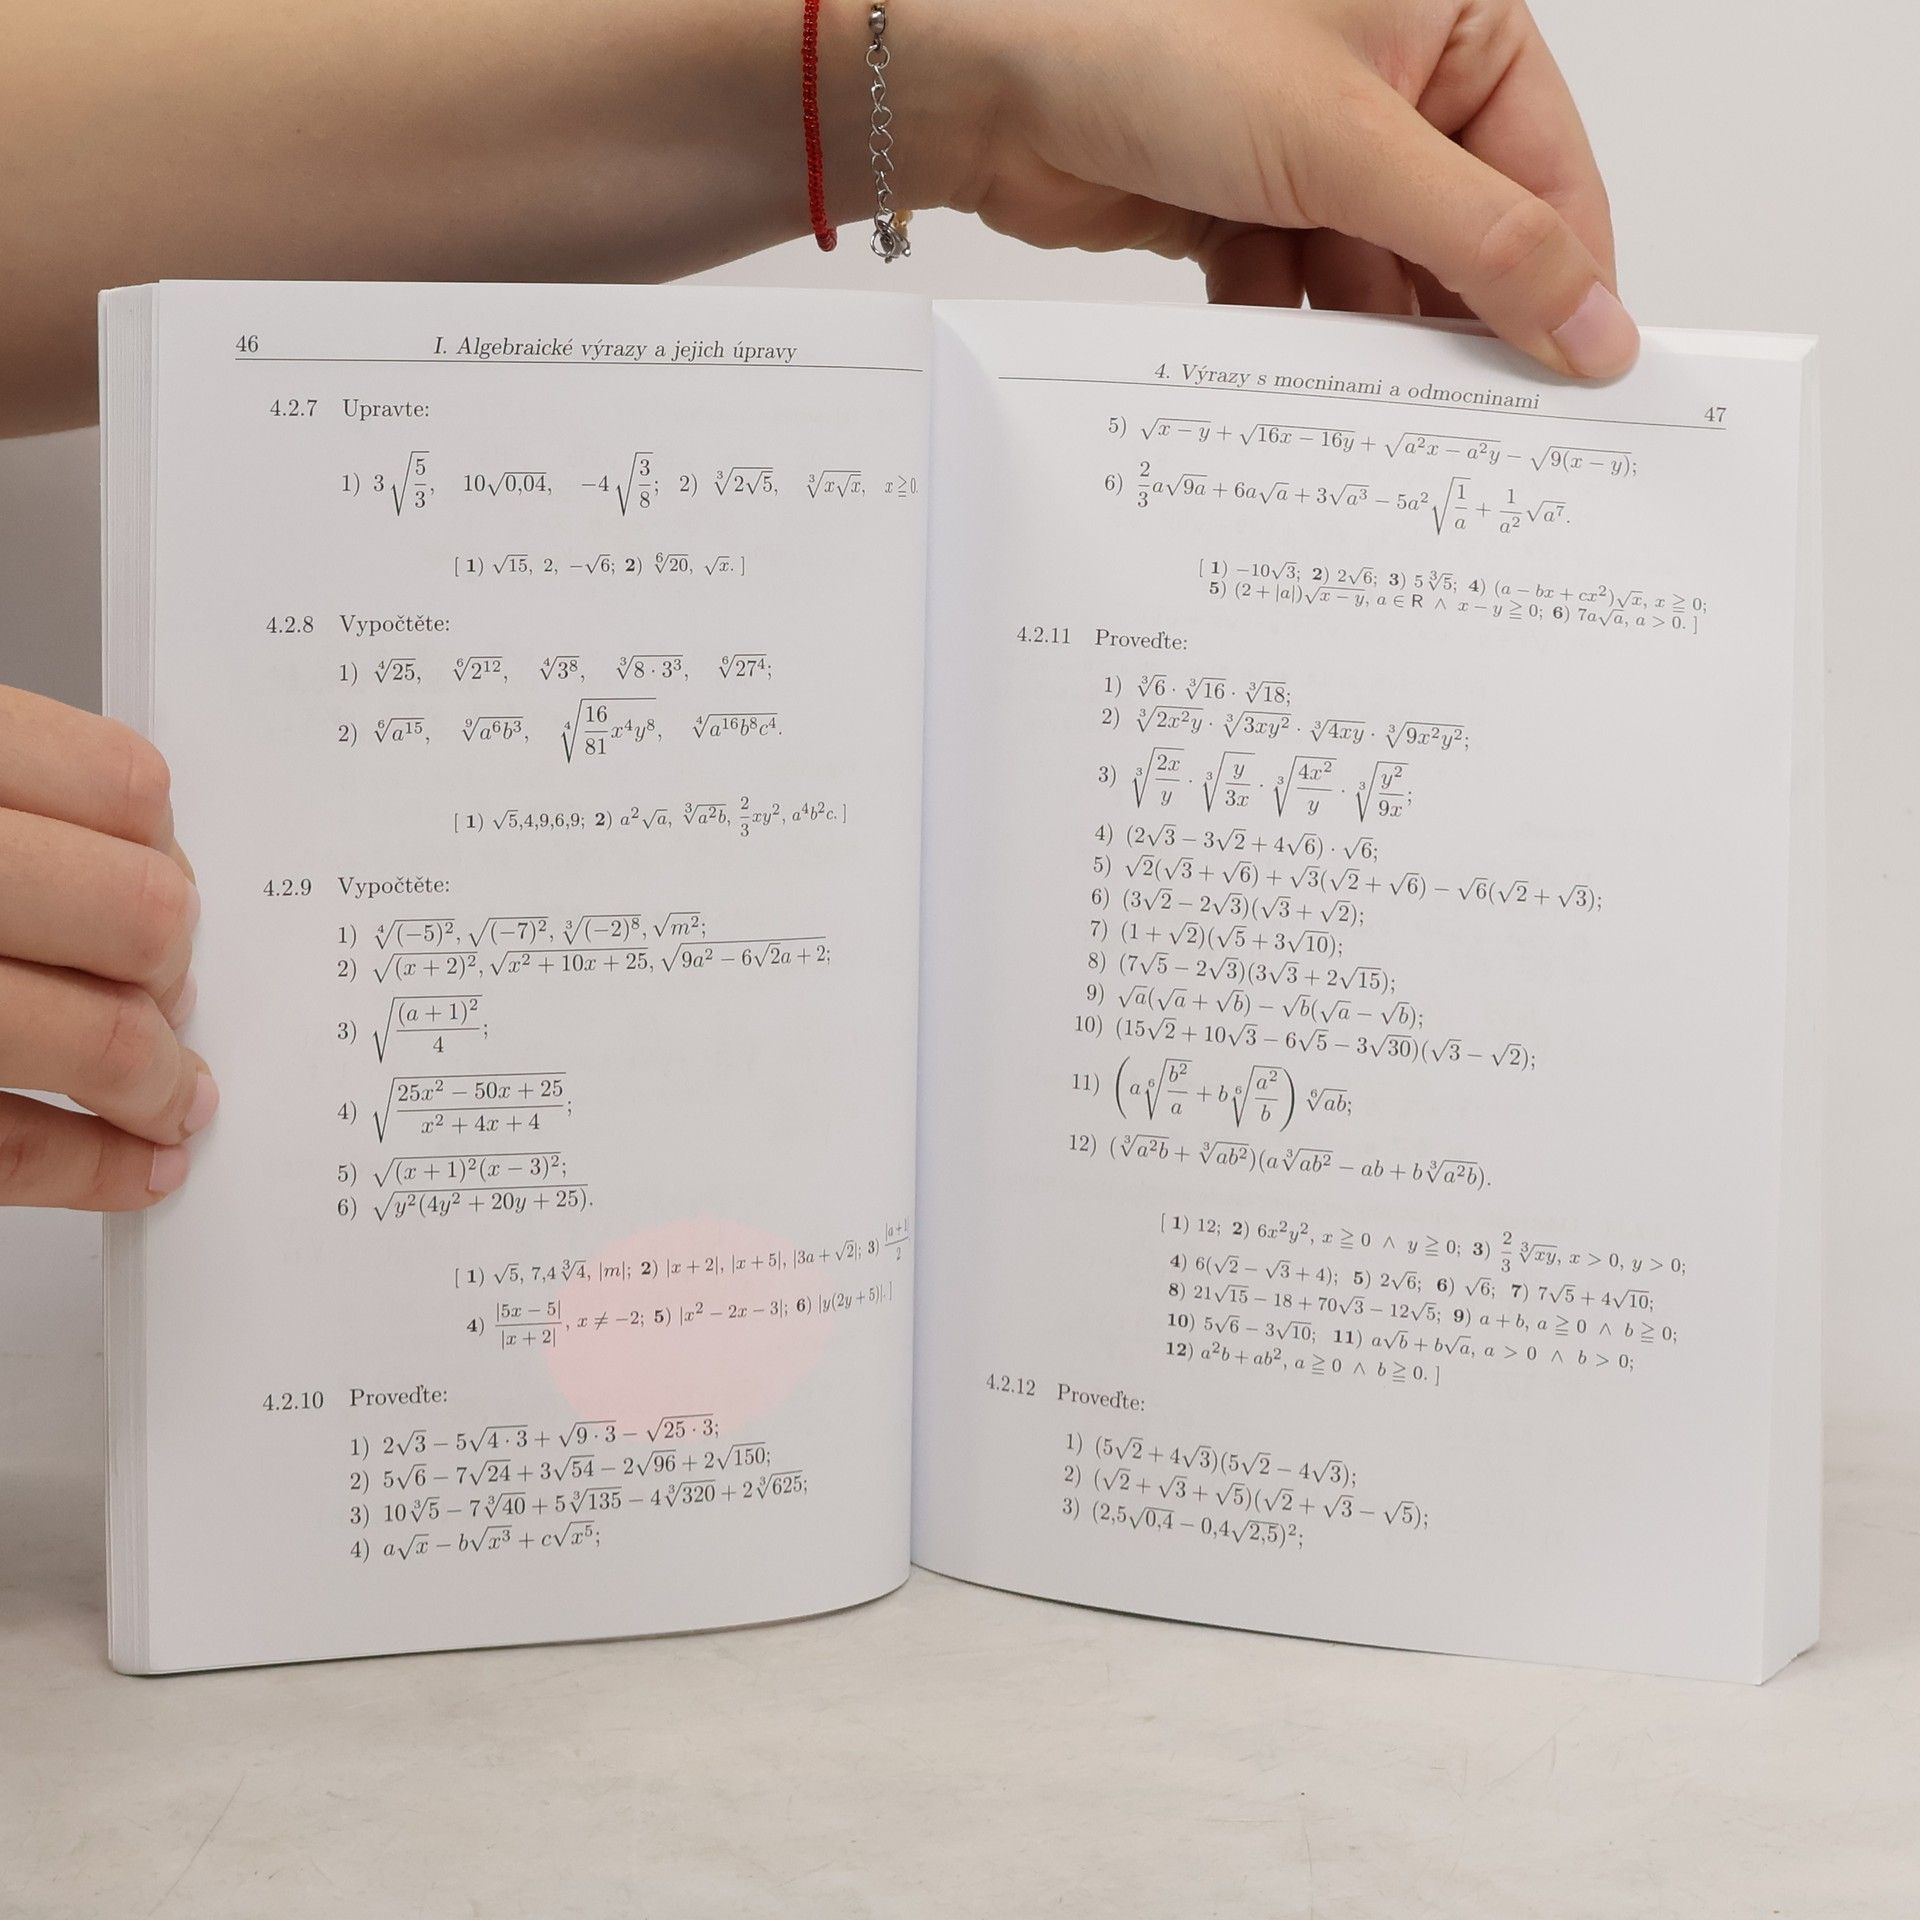 46 I. Algebraické výrazy a jejich úpravy
4.2.7 Upravte:
1) 3√(5/3), 10√0,04, −4√(3/8); 2) ∛(2√5), ∛(x√x), x≧0.
[ 1) √15, 2, −√6; 2) ⁶√20, √x. ]
4.2.8 Vypočtěte:
1) ⁴√25, ⁶√(2¹²), ⁴√(3⁸), ∛(8 · 3³), ⁶√(27⁴);
2) ⁶√(a¹⁵), ⁹√(a⁶b³), ⁴√((16/81)x⁴y⁸), ⁴√(a¹⁶b⁸c⁴).
[ 1) √5,4,9,6,9; 2) a²√a, ∛(a²b), (2/3)xy², a⁴b²c. ]
4.2.9 Vypočtěte:
1) ⁴√((−5)²), √((−7)²), ∛((−2)⁸), √(m²);
2) √((x + 2)²), √(x² + 10x + 25), √(9a² − 6√2a + 2);
3) √((a + 1)²/4);
4) √((25x² − 50x + 25)/(x² + 4x + 4));
5) √((x + 1)²(x − 3)²);
6) √(y²(4y² + 20y + 25)).
[ 1) √5, 7,4∛4, |m|; 2) |x + 2|, |x + 5|, |3a + √2|; 3) |a+1|/2
4) |5x − 5|/|x + 2|, x ≠ −2; 5) |x² − 2x − 3|; 6) |y(2y + 5)|. ]
4.2.10 Proveďte:
1) 2√3 − 5√(4 · 3) + √(9 · 3) − √(25 · 3);
2) 5√6 − 7√24 + 3√54 − 2√96 + 2√150;
3) 10∛5 − 7∛40 + 5∛135 − 4∛320 + 2∛625;
4) a√x − b√(x³) + c√(x⁵);
4. Výrazy s mocninami a odmocninami 47
5) √(x − y) + √(16x − 16y) + √(a²x − a²y) − √(9(x − y));
6) (2/3)a√(9a) + 6a√a + 3√(a³) − 5a²√(1/a) + (1/a²)√(a⁷).
[ 1) −10√3; 2) 2√6; 3) 5∛5; 4) (a − bx + cx²)√x, x ≧ 0;
5) (2 + |a|)√(x − y), a ∈ R ∧ x − y ≧ 0; 6) 7a√a, a > 0. ]
4.2.11 Proveďte:
1) ∛6 · ∛16 · ∛18;
2) ∛(2x²y) · ∛(3xy²) · ∛(4xy) · ∛(9x²y²);
3) ∛(2x/y) · ∛(y/3x) · ∛(4x²/y) · ∛(y²/9x);
4) (2√3 − 3√2 + 4√6) · √6;
5) √2(√3 + √6) + √3(√2 + √6) − √6(√2 + √3);
6) (3√2 − 2√3)(√3 + √2);
7) (1 + √2)(√5 + 3√10);
8) (7√5 − 2√3)(3√3 + 2√15);
9) √a(√a + √b) − √b(√a − √b);
10) (15√2 + 10√3 − 6√5 − 3√30)(√3 − √2);
11) (a ⁶√(b²/a) + b ⁶√(a²/b)) ⁶√(ab);
12) (∛(a²b) + ∛(ab²))(a∛(ab²) − ab + b∛(a²b)).
[ 1) 12; 2) 6x²y², x ≧ 0 ∧ y ≧ 0; 3) (2/3)∛(xy), x > 0, y > 0;
4) 6(√2 − √3 + 4); 5) 2√6; 6) √6; 7) 7√5 + 4√10;
8) 21√15 − 18 + 70√3 − 12√5; 9) a + b, a ≧ 0 ∧ b ≧ 0;
10) 5√6 − 3√10; 11) a√b + b√a, a > 0 ∧ b > 0;
12) a²b + ab², a ≧ 0 ∧ b ≧ 0. ]
4.2.12 Proveďte:
1) (5√2 + 4√3)(5√2 − 4√3);
2) (√2 + √3 + √5)(√2 + √3 − √5);
3) (2,5√0,4 − 0,4√2,5)²;